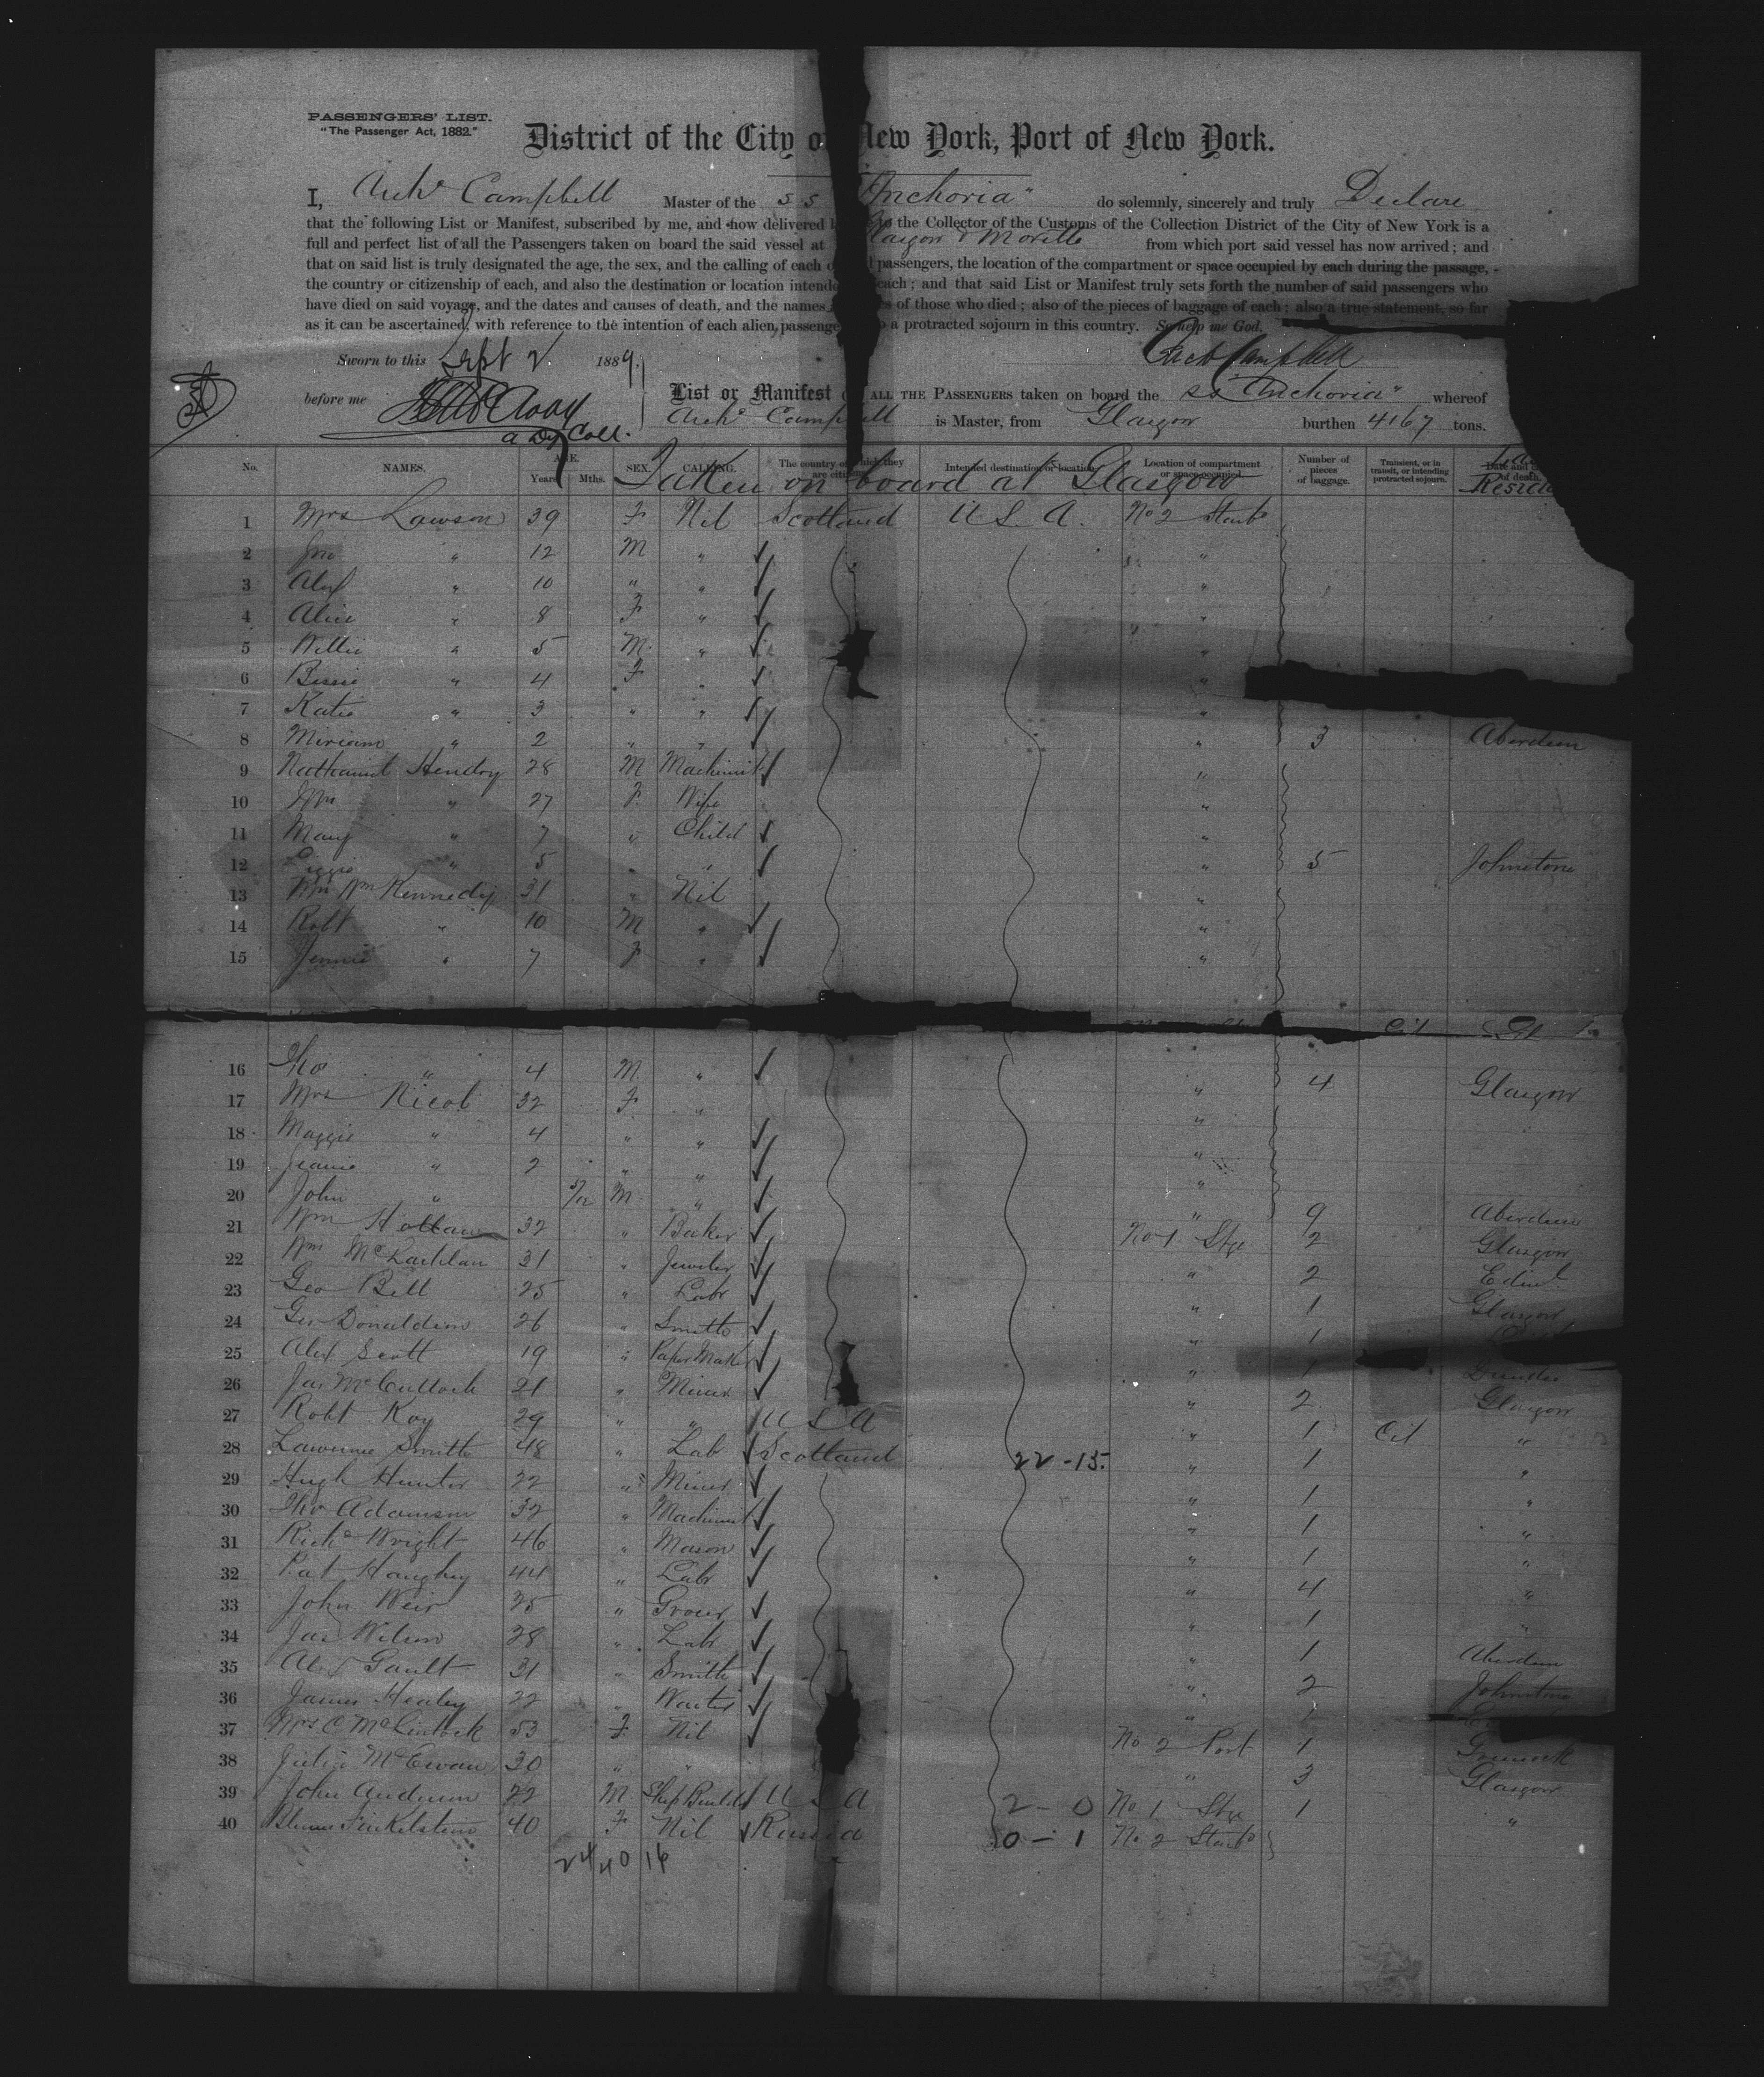 PASSENGERS' LIST.
"The Passenger Act, 1882."
District of the City of New York, Port of New York.
I, Archd Campbell Master of the SS "Anchoria" do solemnly, sincerely and truly Declare
that the following List or Manifest, subscribed by me, and now delivered to the Collector of the Customs of the Collection District of the City of New York is a
full and perfect list of all the Passengers taken on board the said vessel at Glasgow & Moville from which port said vessel has now arrived; and
that on said list is truly designated the age, the sex, and the calling of each of passengers, the location of the compartment or space occupied by each during the passage,
the country or citizenship of each, and also the destination or location intended each; and that said List or Manifest truly sets forth the number of said passengers who
have died on said voyage, and the dates and causes of death, and the names of those who died; also of the pieces of baggage of each; also a true statement, so far
as it can be ascertained, with reference to the intention of each alien passenger a protracted sojourn in this country. So help me God.
Sworn to this Sept 2 1889.
Archd Campbell
before me
a Dy Coll.
List or Manifest of ALL THE PASSENGERS taken on board the SS "Anchoria" whereof
Archd Campbell is Master, from Glasgow burthen 4167 tons.
No. NAMES. AGE. Years Mths. SEX. CALLING. The country of which they are citizens Intended destination or location Location of compartment or space occupied Number of pieces of baggage. Transient, or in transit, or intending protracted sojourn. Date and of death
Taken on board at Glasgow
1 Mrs Lawson 39 F Nil Scotland U.S.A. No 2 Starbd
2 Jno " 12 M " "
3 Alex " 10 " " "
4 Alice " 8 F " "
5 Willie " 5 M " "
6 Bessie " 4 F " "
7 Katie " 3 " " "
8 Miriam " 2 " " " 3 Aberdeen
9 Nathaniel Hendry 28 M Machinist "
10 Mrs " 27 F Wife "
11 Mary " 7 " Child "
12 Lizzie " 5 " " " 5 Johnstone
13 Mrs Wm Kennedy 31 " Nil "
14 Robt " 10 M " "
15 Jennie " 7 F " "
16 Tho " 4 M " " 4 Glasgow
17 Mrs Nicol 32 F " "
18 Maggie " 4 " " "
19 Jeanie " 2 " " "
20 John " 5/12 M " " 9 Aberdeen
21 Wm 32 " Baker No 1 Stge 2 Glasgow
22 Wm McLachlan 31 " Jeweler " 2 Edinb
23 Geo Bell 25 " Labr " 1 Glasgow
24 Geo Donaldson 26 " Smith " 1
25 Alex Scott 19 " Paper Maker " 1 Dundee
26 Jas McCulloch 21 " Miner " 2 Glasgow
27 Robt Kay 29 " " U S A " 1 Cit "
28 Lawrence Smith 48 " Lab Scotland 22-15 " 1 "
29 Hugh Hunter 22 " Miner " 1 "
30 Tho Adamson 32 " Machinist " 1 "
31 Richd Wright 46 " Mason " 1 "
32 Pat Haughey 44 " Labr " 4 "
33 John Weir 25 " Grocer " 1 "
34 Jas Wilson 28 " Labr " 1 Aberdeen
35 Alex Gault 31 " Smith " 2 Johnstone
36 James Healey 22 " Waiter "
37 Mrs C McLintock 53 F Nil No 2 Port 1 Greenock
38 Julia McEwan 30 " " " 3 Glasgow
39 John Anderson 22 M Ship Builder U S A 2-0 No 1 Stge 1 "
40 Finkelstein 40 F Nil Russia 0-1 No 2 Starbd
24/40 16